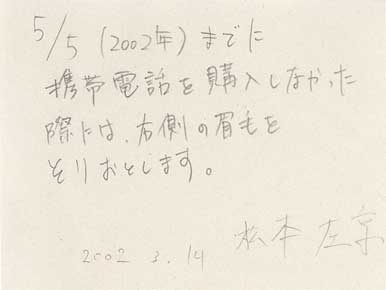 5/5 (2002年) までに
携帯電話を購入しなかった
際には、右側の眉毛を
そりおとします。
2002 3. 14 松本 左京